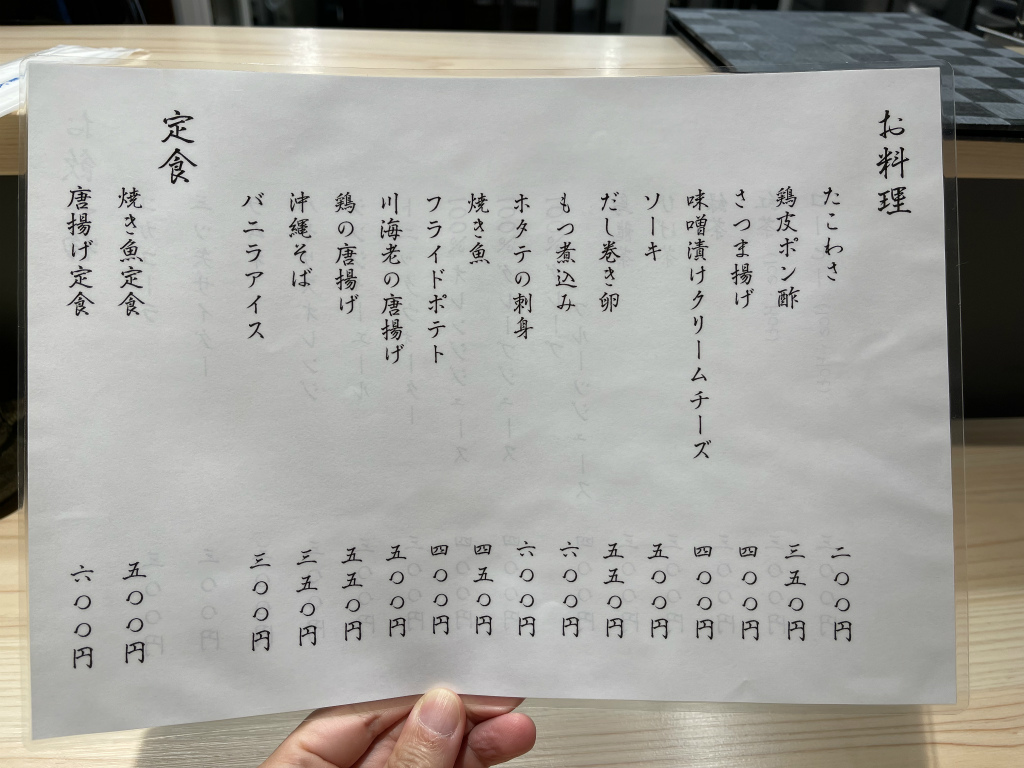 お料理
たこわさ 二〇〇円
鶏皮ポン酢 三五〇円
さつま揚げ 四〇〇円
味噌漬けクリームチーズ 四〇〇円
ソーキ 五〇〇円
だし巻き卵 五五〇円
もつ煮込み 六〇〇円
ホタテの刺身 六〇〇円
焼き魚 四五〇円
フライドポテト 四〇〇円
川海老の唐揚げ 五〇〇円
鶏の唐揚げ 五五〇円
沖縄そば 三五〇円
バニラアイス 三〇〇円
定食
焼き魚定食 五〇〇円
唐揚げ定食 六〇〇円